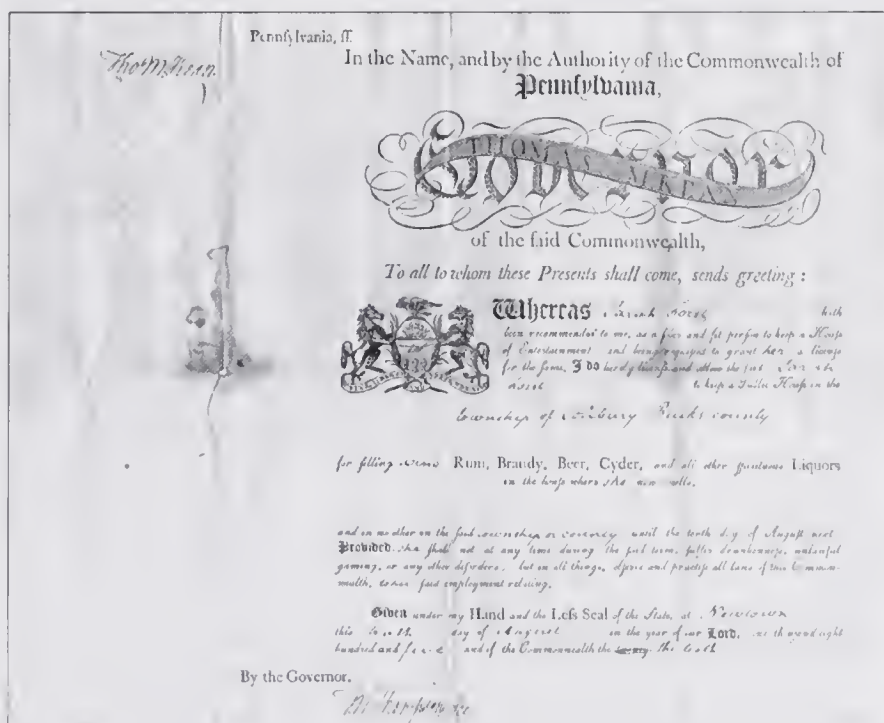 Pennſylvania, ſſ.
Tho M:Kean
In the Name, and by the Authority of the Commonwealth of
Pennſylvania,
THOMAS M:KEAN
Governor
of the ſaid Commonwealth,
To all to whom theſe Preſents ſhall come, sends greeting:
Whereas Sarah hath
been recommended to me, as a and fit perſon to keep a Houſe
of Entertainment and being requeſted to grant her a license
for the ſame, I do hereby license and allow the ſaid Sarah
to keep a Public Houſe in the
township of Bucks county
for ſelling wine Rum, Brandy, Beer, Cyder, and all other ſpirituous Liquors
in the houſe where she now dwells,
and in no other in the ſaid township or county until the tenth day of Auguſt next
Provided she ſhall not at any time during the ſaid term, ſuffer drunkenneſs, unlawful
gaming, or any other diſorders, but in all things, obſerve and practiſe all laws of this Common-
wealth, to her ſaid employment relating.
Given under my Hand and the Leſs Seal of the State, at Newtown
this day of August in the year of our Lord, one thouſand eight
hundred and and of the Commonwealth the
By the Governor,